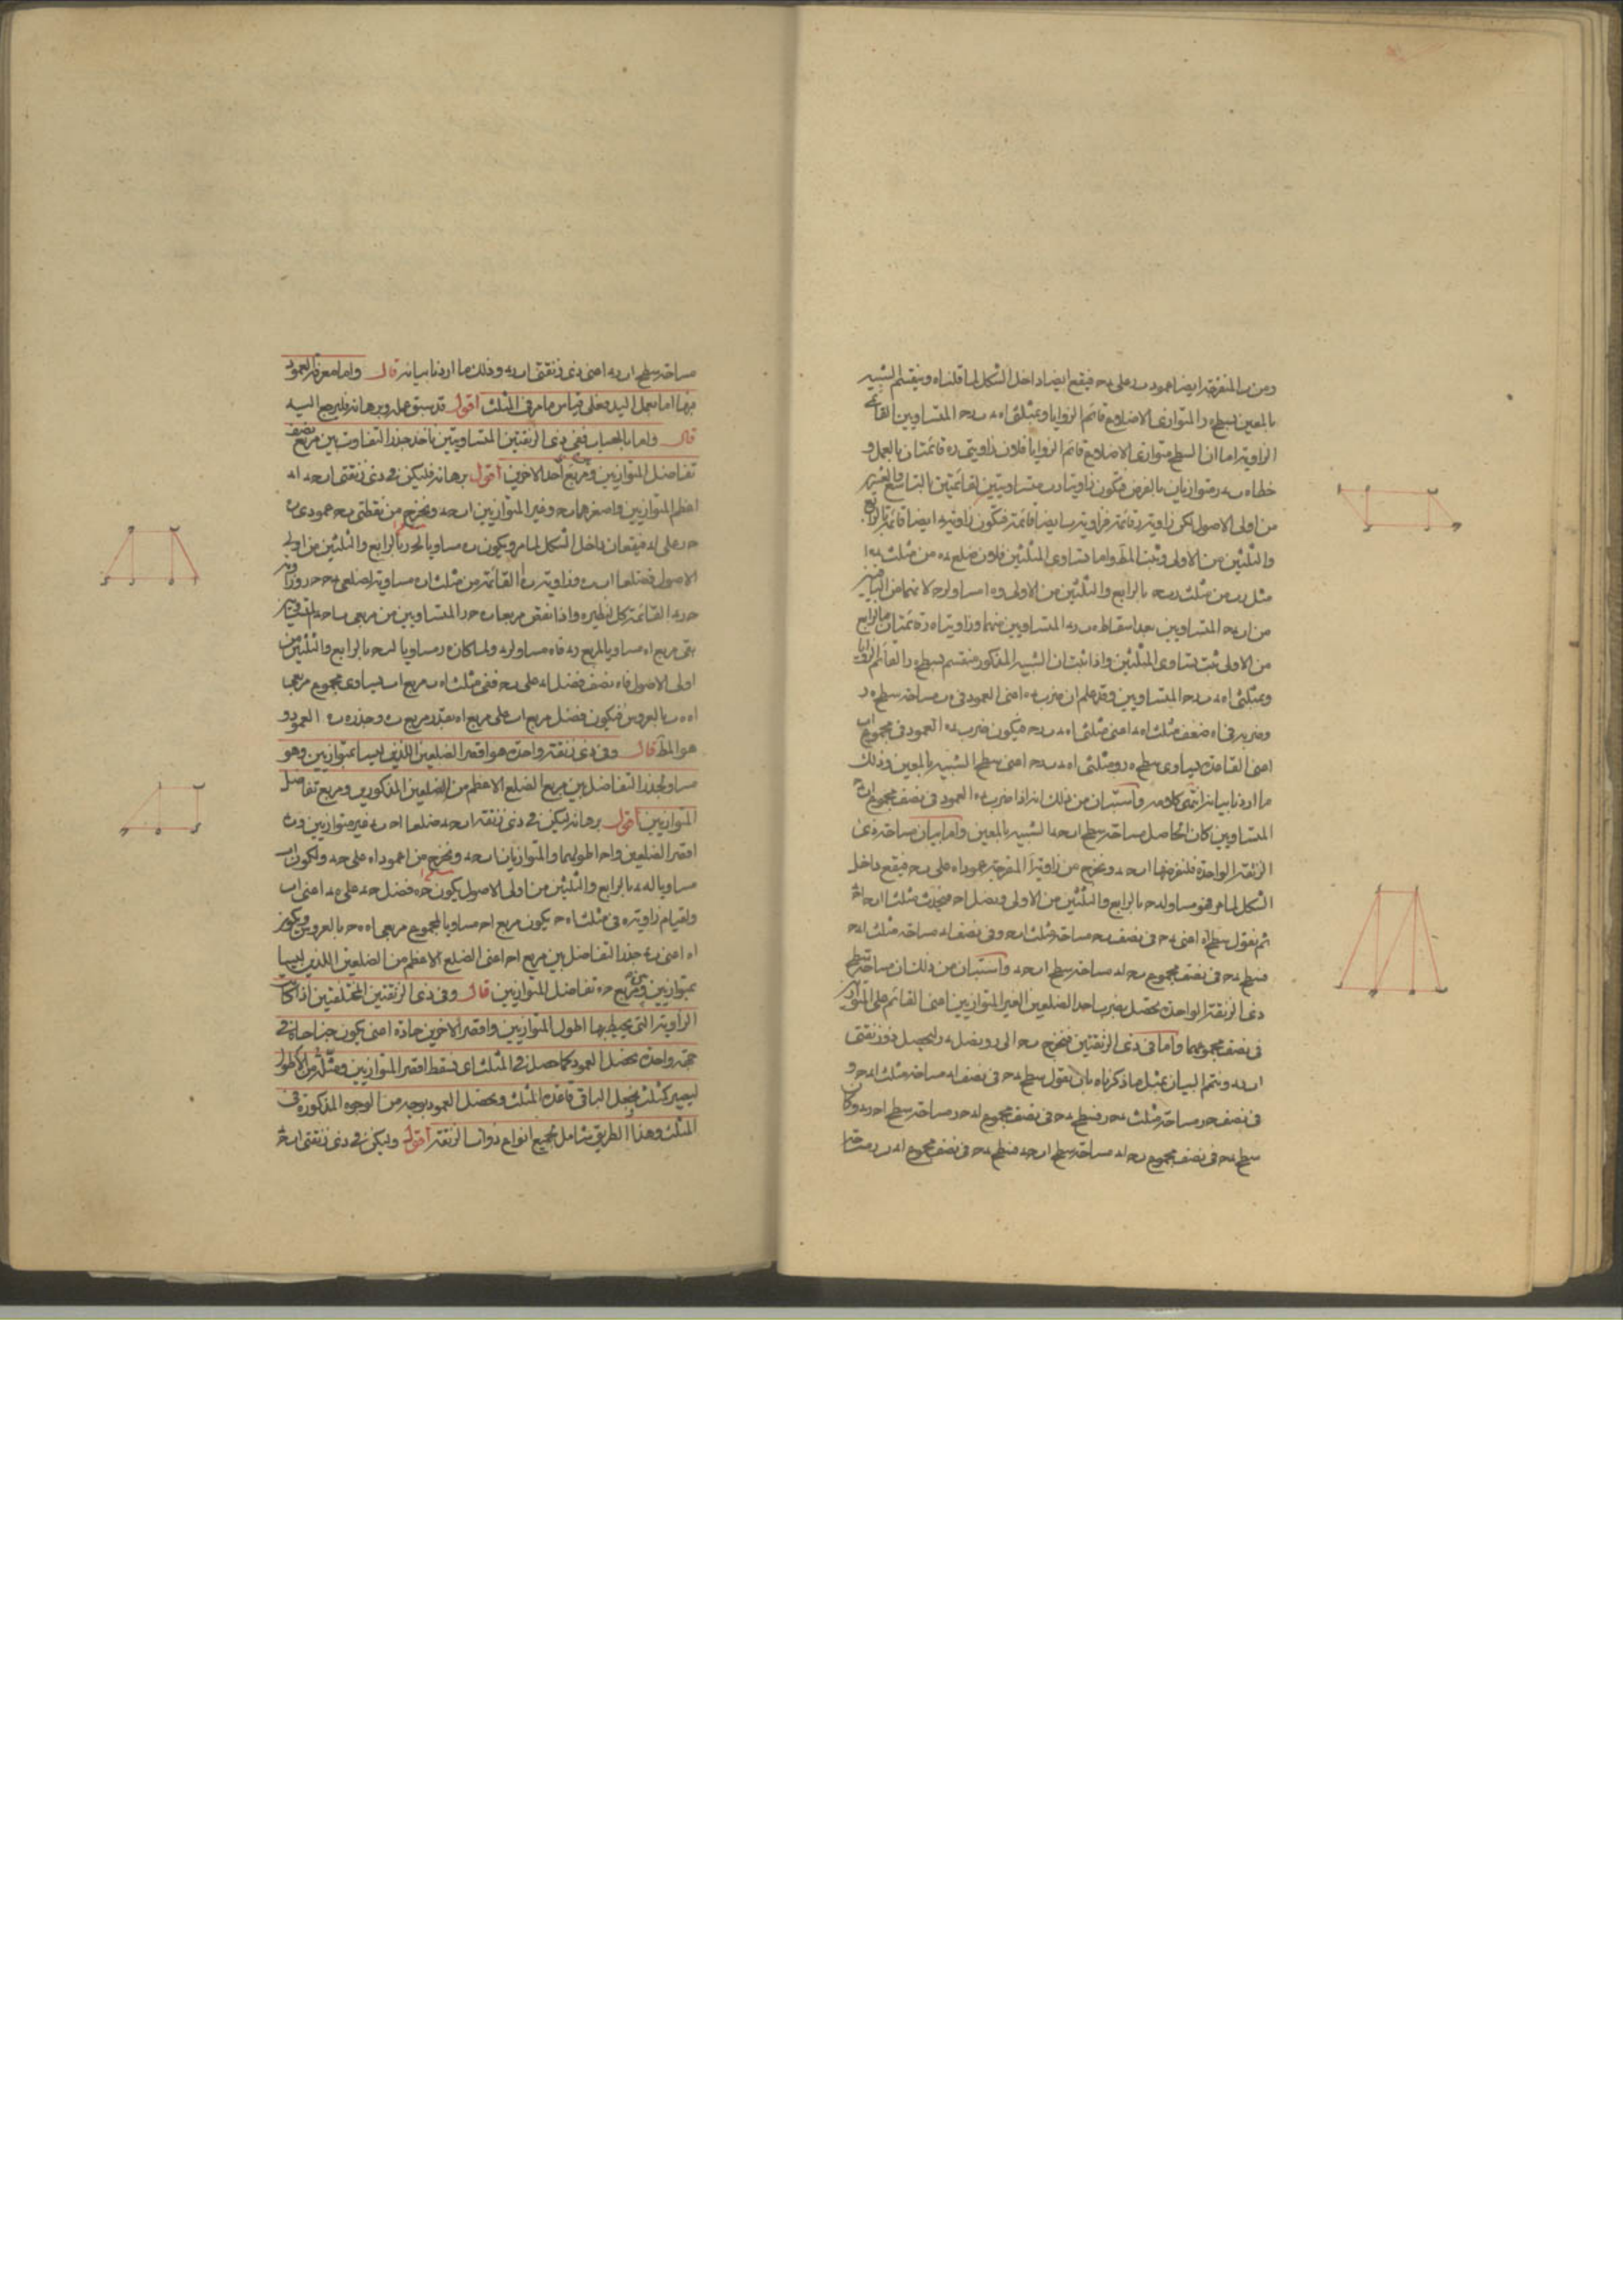 ومن ب المنفرجة ايضا عمود ب ر على د ح فيقع ايضا داخل الشكل لما قلناه وينقسم الشبيه
بالمعين بسطح ه ر المتوازى الاضلاع قائم الزوايا وبمثلثى ا ه د ب ر ح المتساويين القائمى
الزاوية اما ان السطح متوازى الاضلاع قائم الزوايا فلان زاويتى ر ه قائمتان بالعمل و
خطا ا ب د ح متوازيان بالفرض فيكون زاويتا ا ب متساويتين لقائمتين بالتاسع والعشرين
من اولى الاصول لكن زاوية ر قائمة فزاوية ب ايضا قائمة فيكون زاوية ه ايضا قائمة بالرابع
والثلثين من الاولى وثبت المط واما تساوى المثلثين فلان ضلع د ه من مثلث د ه ا
مثل ب ر من مثلث ر ب ح بالرابع والثلثين من الاولى و ه ا مساو لر ح لانهما من الباقيين
من ا ب د ح المتساويين بعد اسقاط ه ب د ر المتساويين منهما وزاويتا ه ر قائمتان فبالرابع
من الاولى ثبت تساوى المثلثين واذا ثبت ان الشبيه المذكور منقسم بسطح ه ر القائم الزوايا
وبمثلثى ا ه د ب ر ح المتساويين وقد علم ان ضرب د ه اعنى العمود فى ه ب مساحة سطح ه ر
وضربه فى ا ه ضعف مثلث ا ه د اعنى مثلثى ا ه د ب ر ح فيكون ضرب د ه العمود فى مجموع ا ب
اعنى القاعدة يساوى سطح ه ر ومثلثى ا ه د ب ر ح اعنى سطح الشبيه بالمعين وذلك
ما اردنا بيانه انتهى كلامه واستبان من ذلك انه اذا ضرب د ه العمود فى نصف مجموع ا ب د ح
المتساويين كان الحاصل مساحة سطح ا ب ح د الشبيه بالمعين واما بيان مساحة ذى
الزنقة الواحدة فلنفرضها ا ب ح د ونخرج من زاوية ا المنفرجة عمود ا ه على د ح فيقع داخل
الشكل لما مر فهو مساو لب ح بالرابع والثلثين من الاولى ونصل ا ح فيحدث مثلثا ا ب ح ا د ح
ثم نقول سطح ا ه اعنى ب ح فى نصف د ح مساحة مثلث ا د ح وفى نصف ا ب مساحة مثلث ا ب ح
فسطح ب ح فى نصف مجموع د ح ا ب مساحة سطح ا ب ح د واستبان من ذلك ان مساحة سطح
ذى الزنقة الواحدة يحصل بضرب احد الضلعين الغير المتوازيين اعنى القائم على المتوازيين
فى نصف مجموعهما واما فى ذى الزنقتين فنخرج د ح الى ر ونصل ب ر ليحصل ذو زنقتى
ا ب ر د ونتمم البيان بمثل ما ذكرناه بان نقول سطح ب ح فى نصف ا ب مساحة مثلث ا ب ح و
فى نصف ح ر مساحة مثلث ب ح ر فسطح ب ح فى نصف مجموع ا ب ح ر مساحة سطح ا ح ر ب وكان
سطح ب ح فى نصف مجموع د ح ا ب مساحة سطح ا ب ح د فسطح ب ح فى نصف مجموع ا ب د ر مساحتا
مساحة سطح ا ب ر د اعنى ذى زنقتى ا ب ر د وذلك ما اردنا بيانه قال واما معرفة العمود
فيها اما بعمل اليد فعلى قياس ما مر فى المثلث اقول قد سبق عمله وبرهانه فليرجع اليه
قال واما بالحساب ففى ذى الزنقتين المتساويتين ناخذ جذر التفاوت بين مربع نصف
تفاضل المتوازيين ومربع احد الاخرين اقول برهانه فليكن فى ذى زنقتى ا ب ح د ا د
اعظم المتوازيين واصغرهما ب ح وغير المتوازيين ا ب ح د ونخرج من نقطتى ب ح عمودى ب ه
ح ر على ا د فيقعان داخل الشكل لما مر ويكون ب ه مساويا لح ر بالرابع والثلثين من اولى
الاصول فضلعا ا ب ب ه وزاوية ه القائمة من مثلث ا ب ه مساوية لضلعى د ح ح ر وزاوية
ح ر د القائمة كل لنظيره واذا نقص مربعا ب ه ح ر المتساويين من مربعى ب ا ح د المتساويين
بقى مربع ا ه مساويا لمربع ر د فا ه مساو لر د ولما كان ه ر مساويا لب ح بالرابع والثلثين من
اولى الاصول فا ه نصف فضل ا د على ب ح ففى مثلث ا ه ب مربع ا ب يساوى مجموع مربعى
ا ه ه ب بالعروس فيكون فضل مربع ا ب على مربع ا ه بقدر مربع ب ه وجذره ب ه العمود و
هو المط قال وفى ذى زنقة واحدة هو اقصر الضلعين اللذين ليسا بمتوازيين وهو
مساو لجذر التفاضل بين مربع الضلع الاعظم من الضلعين المذكورين ومربع تفاضل
المتوازيين اقول برهانه ليكن فى ذى زنقة ا ب ح د ضلعا ا ح ب د غير متوازيين و ب د
اقصر الضلعين و ا ح اطولهما والمتوازيان ا ب ح د ونخرج من ا عمود ا ه على ح د ولكون ا ب
مساويا له د بالرابع والثلثين من اولى الاصول يكون ح ه فضل ح د على ه د اعنى ا ب
ولقيام زاوية ه فى مثلث ا ه ح يكون مربع ا ح مساويا لمجموع مربعى ا ه ه ح بالعروس ويكون
ا ه اعنى ب د جذر التفاضل بين مربع ا ح اعنى الضلع الاعظم من الضلعين اللذين ليسا
بمتوازيين ومربع ح ه تفاضل المتوازيين قال وفى ذى الزنقتين المختلفتين اذا كانت
الزاوية التى يحيط بها اطول المتوازيين واقصر الاخرين حادة اعنى يكون جناحاه فى
جهة واحدة نحصل العمود كما حصلنا فى المثلث اى نسقط اقصر المتوازيين ومثله من الاطول
ليصير كمثلث نجعل الباقى قاعدة المثلث ونحصل العمود بوجه من الوجوه المذكورة فى
المثلث وهذا الطريق شامل لجميع انواع ذوات الزنقة اقول وليكن فى ذى زنقتى ا ب ح د